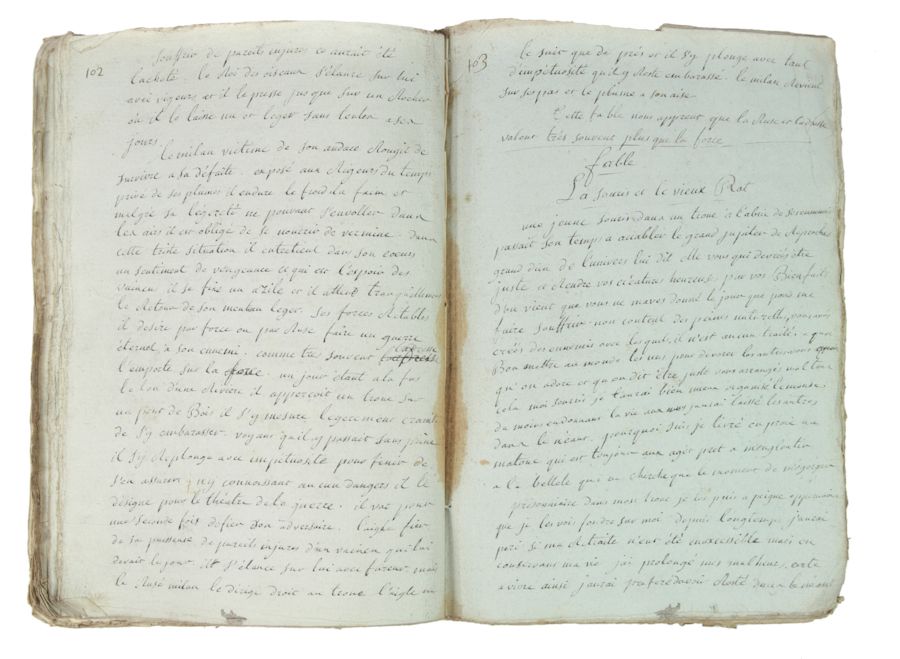 102
Souffrir de pareils injures ce aurait été
lacheté. le Roi des oiseaux s'élance sur lui
avec vigeurs et il le presse jusque sur un Rocher
ou il le laisse nu et leger sans toutes a ses
jours.
le milan victime de son audace Rougit de
survivre a sa défaite. exposé aux Rigeurs du temps
privé de ses plumes il endure le froid la faim et
malgré sa légereté ne pouvant s'envoller dans
les airs il est obligé de se nourir de vermine. dans
cette triste situation il entretient dans son coeurs
un sentiment de vengeance ce qui est l'espoir des
vaincu il se fixe un azile et il attend tranquillement
le Retour de son manteau leger. Ses forces Rétablies
il desire par force ou par Ruse faire un guerre
éternel a son ennemi. comme très souvent l'adresse
l'emporte sur la force. un jour étant a la
le lon d'une olivière il apperçoit un troue sur
un pont de Bois il s'y mesure legerement craints
de s'y embarasser. voyant qu'il y passait sans peine
il s'y Replonge avec impetuosité pour finir de
s'en assurer n'y connaissant aucun dangers il le
désigne pour le théatre de la guerre. il va pour
une seconde fois defier son adversaire. l'aigle fier
de sa puissance de pareils injures d'un vaincu qui lui
devait le jour. et s'élance sur lui avec fureur mais
le Rusé milan le dirige droit au troue l'aigle
103
le suit que de près et il s'y plonge avec tant
d'impétuosité qu'il y Reste embarassé. le milan Revient
sur ses pas et le plume a son aise
Cette fable nous apprent que la Ruse et l'adresse
valent très souvent plus que la force
fable
La souris et le vieux Rat
une jeune souris dans un troue a l'abrie de ses ennemis
passait son temps a accabler le grand jupiter de Reproches
grand dieu de l'univers lui dit elle vous qui devriez être
juste et Rendre vos créatures heureuses par vos Bienfaits
d'ou vient que vous ne m'avez donné le jour que pour me
faire souffrir. non content des peines naturelles, vous avez
créés des ennemis avec lesquels il n'est aucun traité. a quoi
Bon mettre au monde les uns pour devorer les autres vous
qu'on adore et qu'on dit être juste vous arrangés mal tout
cela moi souris je l'aurai bien mieux organisé le monde
du moins en donnant la vie aux uns j'aurai laissé les autres
dans le néant. pourquoi suis je livré en proie au
matous qui est toujour aux aget pret a m'engloutir
a la Bellete que ne cherche que le moment de m'egorger
prisonnière dans mon troue je les puis a peine appercevoir
que je les vois fondre sur moi. depuis longtemps j'aurai
peri si ma Retraite n'eut été inaccessible mais en
conservant ma vie j'ai prolongé mes malheur, cette
a vivre ainsi j'aurai preferé avoir Resté dans le néant